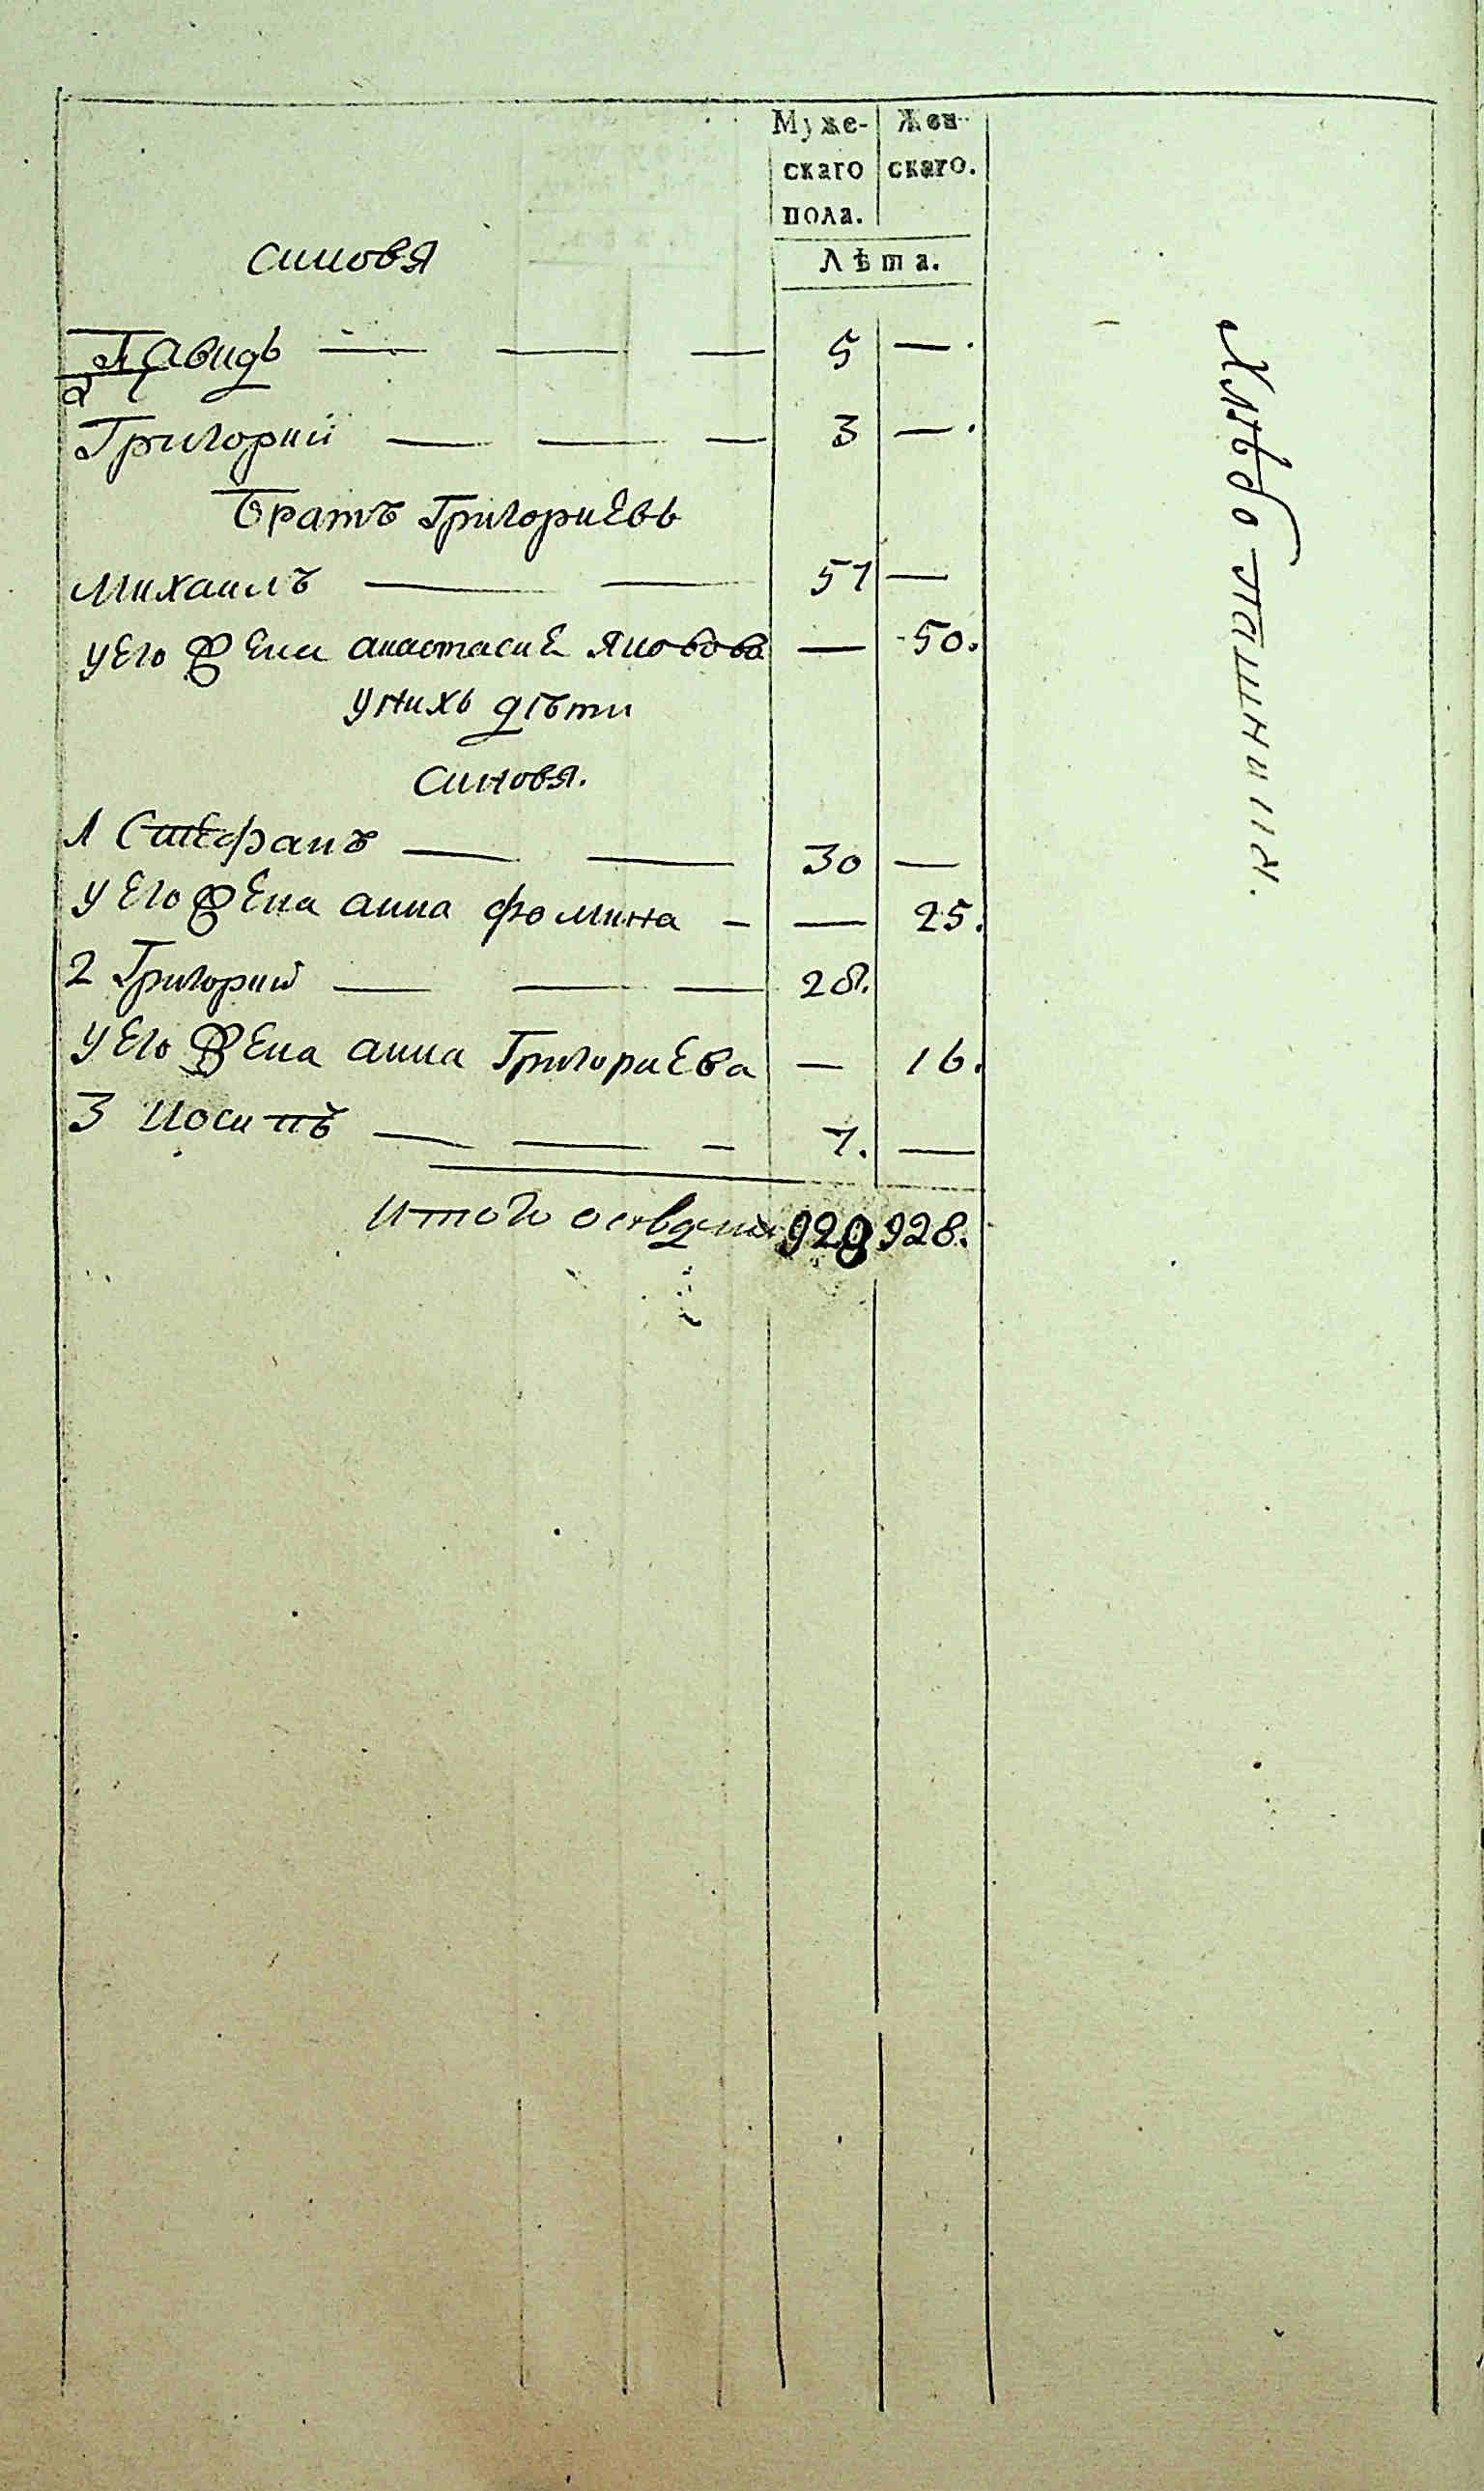 Муже- Жен-
скаго скаго.
пола.
Лѣта.
синовя
Давидь — — — 5 — .
Григорий — — — 3 — .
Братъ Григориевь
Михаилъ — — 51 —
у его жена анастасие Яковова — 50.
у нихь дѣти
синовя.
1 Стефанъ — — 30 —
у его жена анна фомина — — 25.
2 Григорий — — — 28.
у его жена анна Григориева — 16.
3 Иосипъ — — — 7. —
Итого 928 928.
Хлѣбопашпнии.